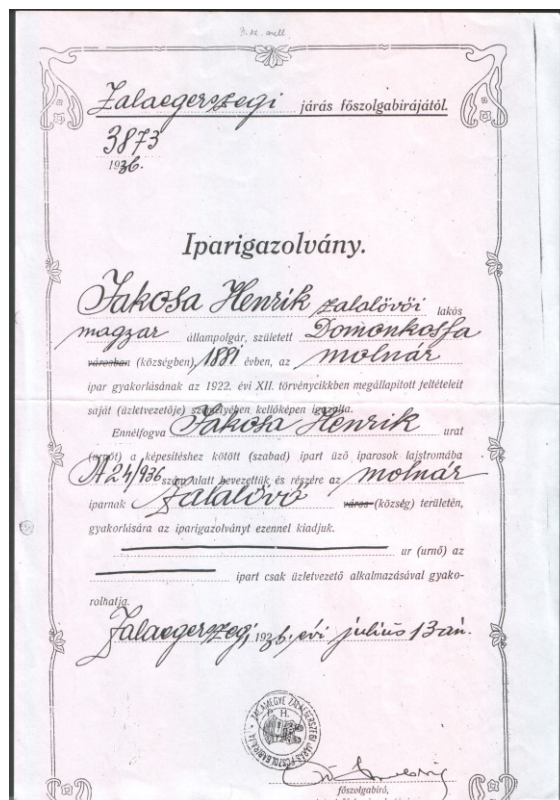 3. sz. mell
Zalaegerszegi járás főszolgabirájától.
3873
1936.
Iparigazolvány.
Jakosa Henrik zalalövői lakós
magyar állampolgár, született Domonkosfa
városban (községben), 1881 évben, az molnár
ipar gyakorlásának az 1922. évi XII. törvénycikkben megállapitott feltételeit
saját (üzletvezetője) személyében kellőképen igazolta.
Ennélfogva Jakosa Henrik urat
(urnőt) a képesitéshez kötött (szabad) ipart üző iparosok lajstromába
A 24/936 szám alatt bevezettük és részére az molnár
iparnak Zalalövő város (község) területén,
gyakorlására az iparigazolványt ezennel kiadjuk.
ur (urnő) az
ipart csak üzletvezető alkalmazásával gyako-
rolhatja.
Zalaegerszeg, 1936. évi július 13 án.
ZALAMEGYE ZALAEGERSZEGI JÁRÁS FŐSZOLGABIRÁJA
főszolgabiró,